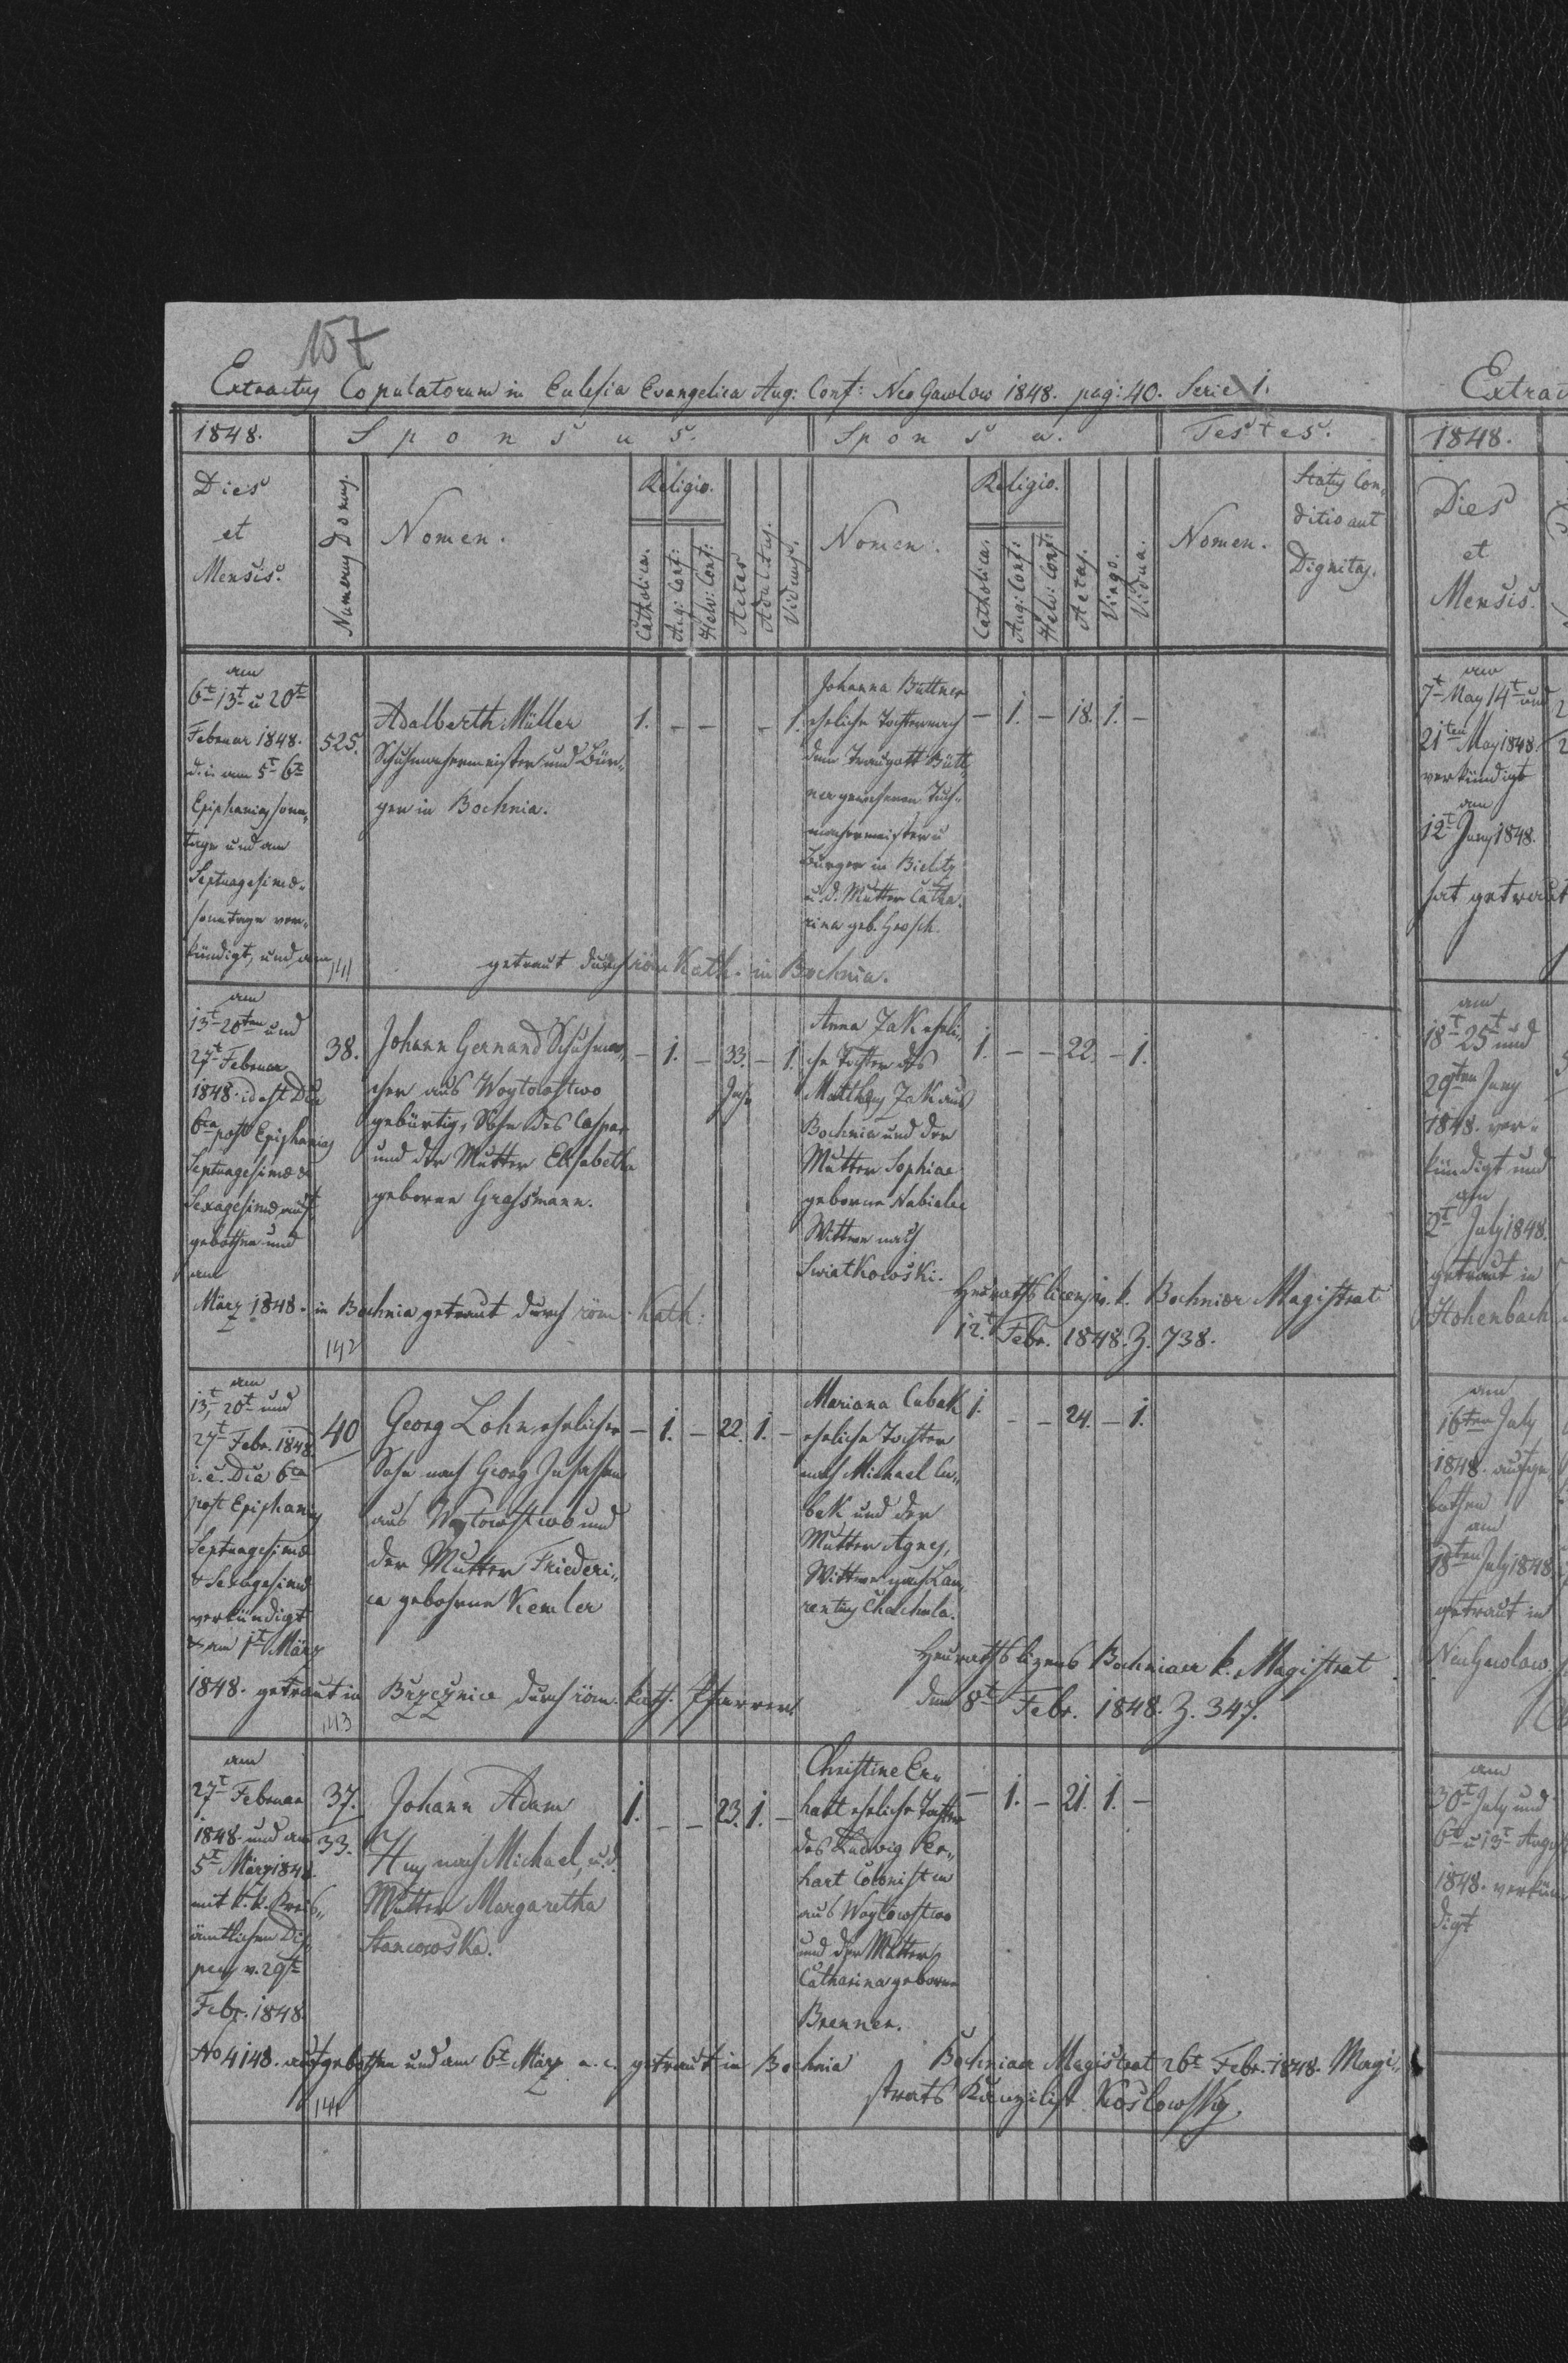 157
Extractus Copulatorum in Eclesia Evangelica Aug: Conf: Neo Gawlow 1848. pag: 40. Serie 1.
1848.
Sponsus.
Sponsa.
Testes.
Dies
et
Mensis.
Numerus Domus.
Nomen.
Religio.
Catholica.
Aug: Conf:
Helv: Conf:
Aetas
Adultus.
Viduus.
Nomen.
Religio.
Catholica.
Aug: Conf:
Helv: Conf:
Aetas.
Virgo.
Vidua.
Nomen.
Status Con„
ditio aut
Dignitas.
am
6t 13t u 20t
Februar 1848.
d. i. am 5t 6t
Epiphanias sonn„
tage und am
Septuagesimae„
sonntage ver„
kündigt, und am
141
525.
Adalberth Müller
Schuhmachermeister und Bür„
ger in Bochnia.
1. – – – 1.
Johanna Büttner
eheliche Tochter nach
dem Traugott Bütt„
ner gewesenen Tuch„
machermeister u
Bürger in Bielitz
u. d. Mutter Catha„
rina geb. Grosch.
– 1. – 18. 1. –
getraut durch röm Kath. in Bochnia.
am
13t 20ten und
27t Februar
1848. id est Dca
6ta post Epiphanias
Septuagesimae &
Sexagesimae auf„
gebothen und
am
März 1848. in Bochnia getraut durch röm. Kath:
142
38.
Johann Gernand Schuhma„
cher aus Woytowstwo
gebürtig, Sohn des Caspar
und der Mutter Elisabetha
geborne Grassmann.
– 1. – 33. – 1.
Jahr
Anna Zak eheli„
che Tochter des
Matthey Zak aus
Bochnia und der
Mutter Sophiae
geborne Nabialec
Wittwe nach
Swiatkowski.
1. – – 22. – 1.
Heuraths licens v. k. Bochnier Magistrat
12t Febr. 1848. Z. 738.
am
13t, 20t und
27t Febr. 1848
i. e. Dca 6ta
post Epiphanias
Septuagesimae
& Sexagesimae
verkündigt
& am 1t März
1848. getraut in Brzeznice durch röm. kath. Pfarrer.
143
40
Georg Lohn, ehelicher
Sohn nach Georg Insassen
aus Woytowstwo und
der Mutter Friederi„
ca gebohrne Kemler
– 1. – 22. 1. –
Mariana Cubak
eheliche Tochter
nach Michael Cu„
bak und der
Mutter Agnes,
Wittwe nach Lau„
rentius Chachula.
1. – – 24. – 1.
Heuraths lizens Bochniaer k. Magistrat
dem 8t Febr. 1848. Z. 347.
am
27t Februar
1848. und am
5t März 1848.
mit k. k. Kreis„
ämtlichen Dis„
pens v. 29t
Febr. 1848
No 4148. aufgebothen und am 6t März a. c. getraut in Bochnia
144
37.
33.
Johann Adam
Huy nach Michael, u. d.
Mutter Margaretha
Stancowska.
1. – – 23. 1. –
Christine Er„
hart eheliche Tochter
des Ludwig Er„
hart Colonisten
aus Woytowstwo
und der Mutter
Catharina geborne
Brenner.
– 1. – 21. 1. –
Bochniaer Magistrat 26t Febr. 1848. Magi„
strats Kanzelist Koslowsky.
Extrac
1848.
Dies
et
Mensis.
am
7t May 14t und
21ten May 1848.
verkündigt
am
12t Juny 1848.
hat getraut
am
18t 25t und
29ten Juny
1848. ver„
kündigt und
am
2t July 1848.
getraut in
Hohenbach
am
16ten July
1848. aufge„
bothen
am
18ten July 1848
getraut in
Neu Gawlow.
am
30t July und
6t u 13t Aug
1848. verkün
digt